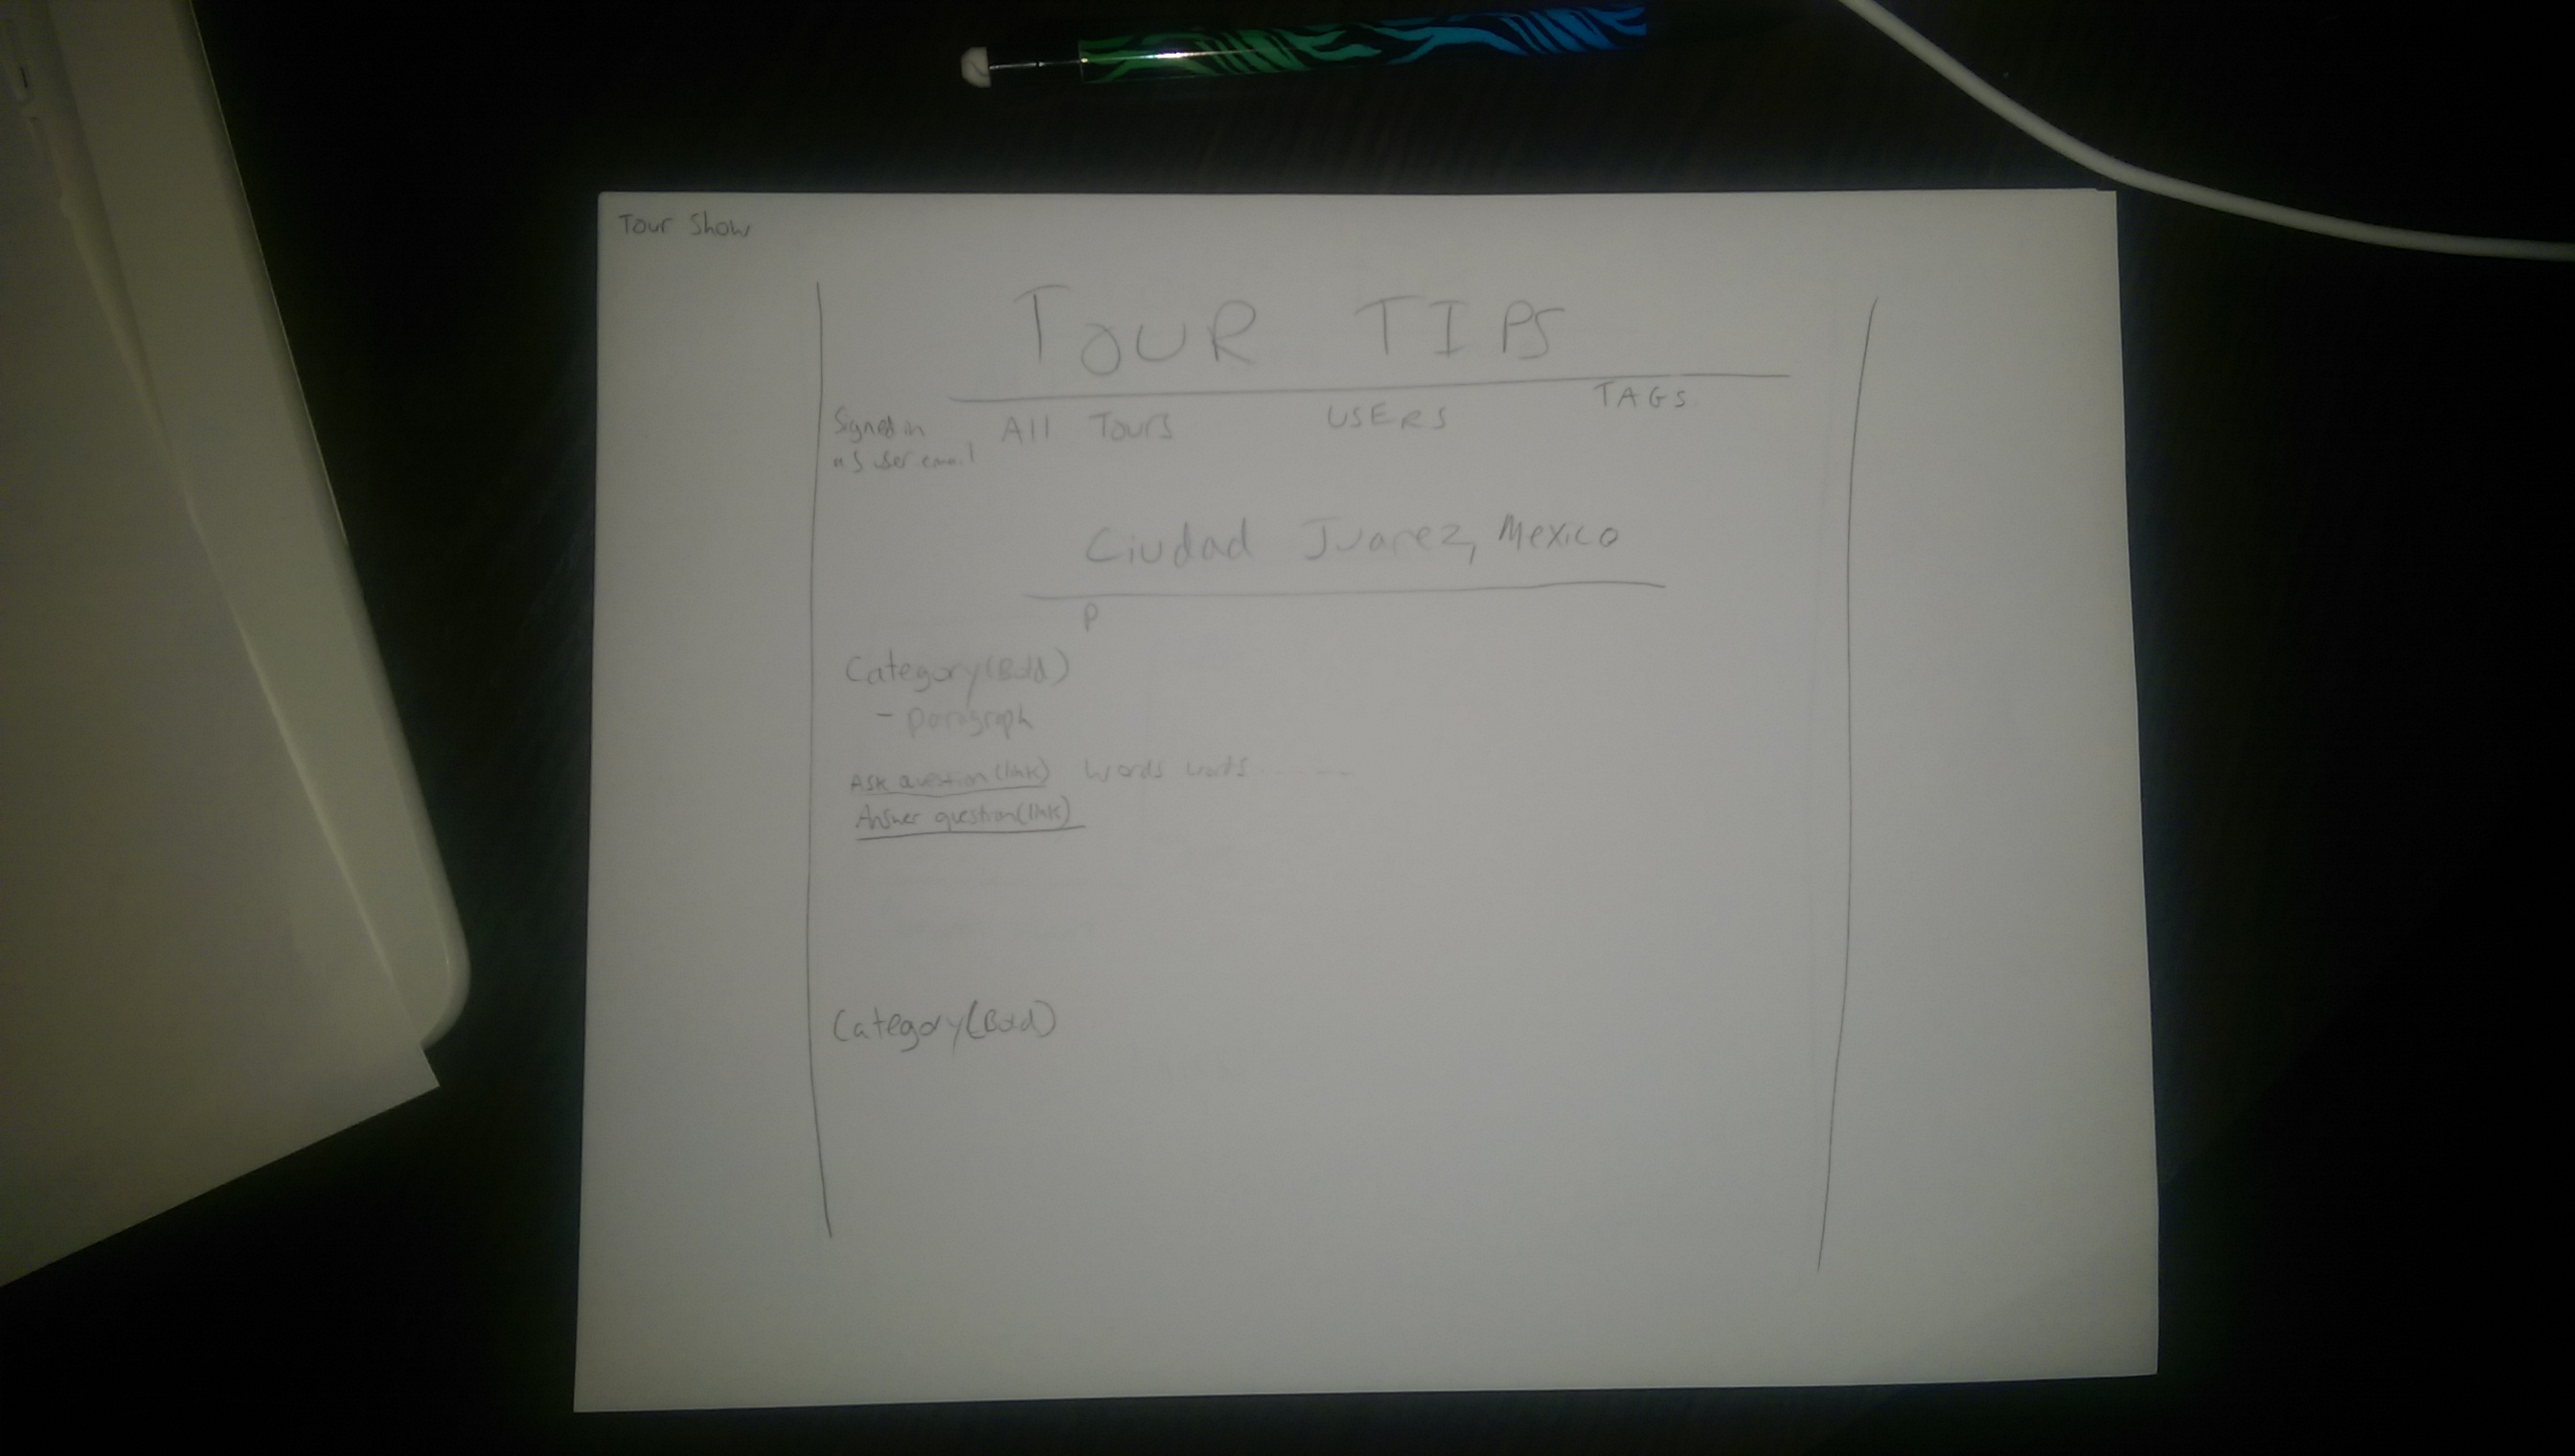 Tour Show
TOUR TIPS
Signed in
as user.email
All Tours USERS TAGS
Ciudad Juarez, Mexico
P
Category(Bold)
- paragraph
Ask question(link) words words ... --
Answer question(link)
Category(Bold)